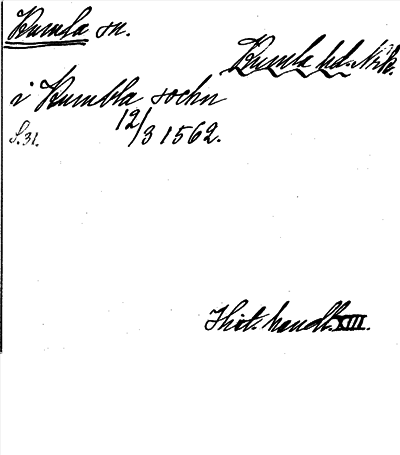 Kumla sn.
Kumla hd. Nrk.
i Kumbla sochn
S. 31. 12/3 1562.
Hist. handl. XIII.